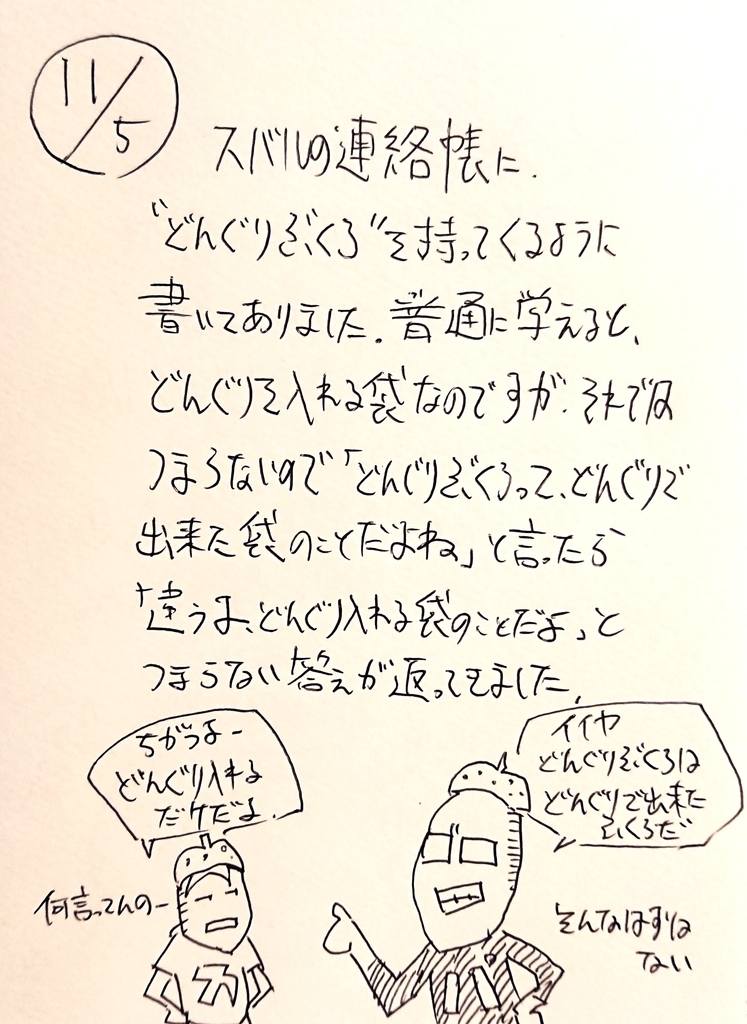 11/5
スバルの連絡帳に、
"どんぐりぶくろ"を持ってくるように
書いてありました。普通に考えると、
どんぐりを入れる袋なのですが、それでは
つまらないので「どんぐりぶくろって、どんぐりで
出来た袋のことだよね」と言ったら
「違うよ、どんぐり入れる袋のことだよ」と
つまらない答えが返ってきました。
ちがうよー
どんぐり入れる
だケだよ
イイヤ
どんぐりぶくろは
どんぐりで出来た
ふくろだ
何言ってんのー
そんなはずは
ない
ス
パパ